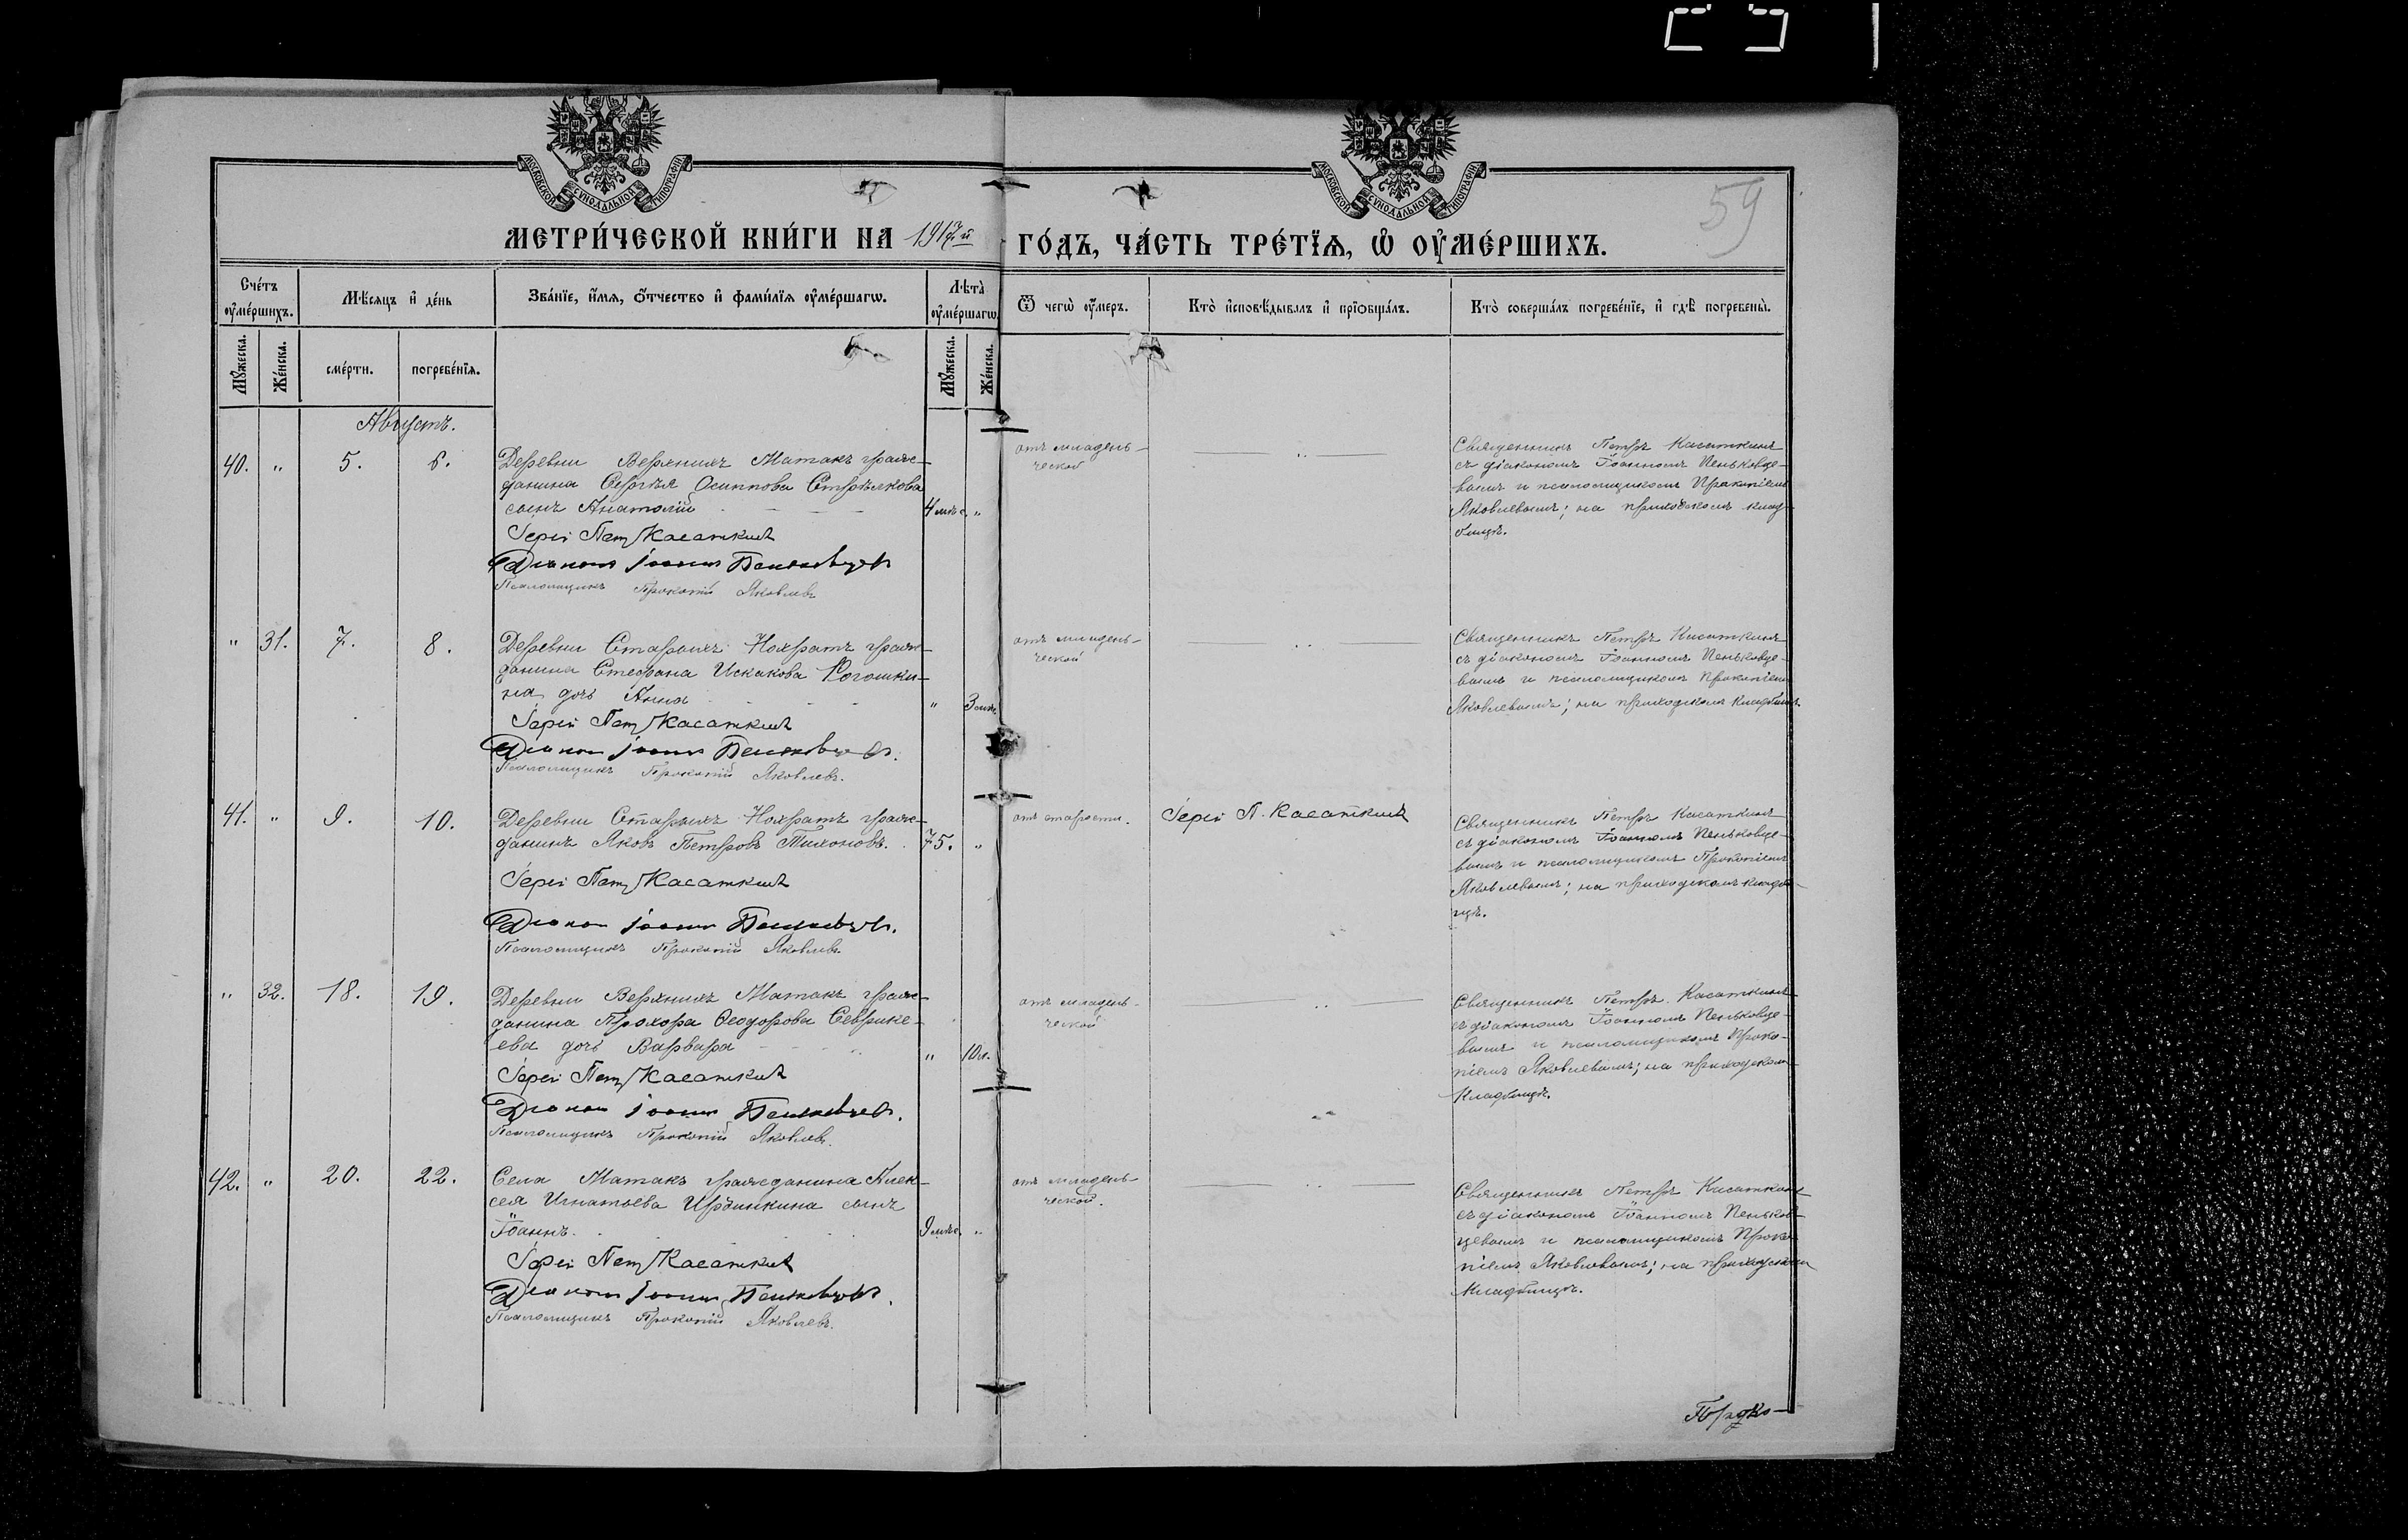 МОСКОВСКОЙ СѴНОДАЛЬНОЙ ТИПОГРАФІИ
МОСКОВСКОЙ СѴНОДАЛЬНОЙ ТИПОГРАФІИ
59
МЕТРИ́ЧЕСКОЙ КНИ́ГИ НА 1917й ГО́ДЪ, ЧА́СТЬ ТРЕ́ТЇѦ, Ѡ҆ ОУ҆МЕ́РШИХЪ.
Сче́тъ оу҆ме́ршихъ.
Мѣ́сѧцъ и҆ де́нь
Зва́нїе, и҆́мѧ, ѻ҆́тчество и҆ фами́лїѧ оу҆ме́ршагѡ.
Лѣта̀ оу҆ме́ршагѡ.
Ѿ чегѡ̀ оу҆́меръ.
Кто̀ и҆сповѣ́дывалъ и҆ прїѡбща́лъ.
Кто̀ соверша́лъ погребе́нїе, и҆ гдѣ̀ погребены̀.
Мꙋ́жеска.
Же́нска.
сме́рти.
погребе́нїѧ.
Мꙋ́жеска.
Же́нска.
Августъ.
40. " 5. 6.
Деревни Верхнихъ Матакъ граж-
данина Сергѣя Осиппова Стрѣлкова
сынъ Анатолій 4 мѣс. "
Іерей Петръ Касаткинъ
Діаконъ Іоаннъ Пеньковцевъ
Псаломщикъ Прокопій Яковлевъ
отъ младень-
ческой
Священникъ Петръ Касаткинъ
съ діакономъ Іоанномъ Пеньковце-
вымъ и псаломщикомъ Прокопіемъ
Яковлевымъ; на приходскомъ клад-
бищѣ.
" 31. 7. 8.
Деревни Старыхъ Нохратъ граж-
данина Стефана Искакова Рогошки-
на дочь Анна " 3 мѣс.
Іерей Петръ Касаткинъ
Діаконъ Іоаннъ Пеньковцевъ.
Псаломщикъ Прокопій Яковлевъ.
отъ младень-
ческой
Священникъ Петръ Касаткинъ
съ діакономъ Іоанномъ Пеньковце-
вымъ и псаломщикомъ Прокопіемъ
Яковлевымъ; на приходскомъ кладбищѣ
41. " 9. 10.
Деревни Старыхъ Нохратъ граж-
данинъ Яковъ Петровъ Тихоновъ. 75. "
Іерей Петръ Касаткинъ
Діаконъ Іоаннъ Пеньковцевъ.
Псаломщикъ Прокопій Яковлевъ
отъ старости.
Іерей П. Касаткинъ
Священникъ Петръ Касаткинъ
съ діакономъ Іоанномъ Пеньковце-
вымъ и псаломщикомъ Прокопіемъ
Яковлевымъ; на приходскомъ кладби-
щѣ.
" 32. 18. 19.
Деревни Верхнихъ Матакъ граж-
данина Прохора Ѳеодорова Севрике-
ева дочь Варвара " 10 м.
Іерей Петръ Касаткинъ
Діаконъ Іоаннъ Пеньковцевъ.
Псаломщикъ Прокопій Яковлевъ.
отъ младень-
ческой
Священникъ Петръ Касаткинъ
съ діакономъ Іоанномъ Пеньковце-
вымъ и псаломщикомъ Проко-
піемъ Яковлевымъ; на приходскомъ
кладбищѣ.
42. " 20. 22.
Села Матакъ гражданина Алек-
сея Игнатьева Ирдинкина сынъ
Іоаннъ. 9 мѣс. "
Іерей Петръ Касаткинъ
Діаконъ Іоаннъ Пеньковцевъ.
Псаломщикъ Прокопій Яковлевъ.
отъ младень-
ческой.
Священникъ Петръ Касаткинъ
съ діакономъ Іоанномъ Пеньков-
цевымъ и псаломщикомъ Проко-
піемъ Яковлевымъ; на приходскомъ
кладбищѣ.